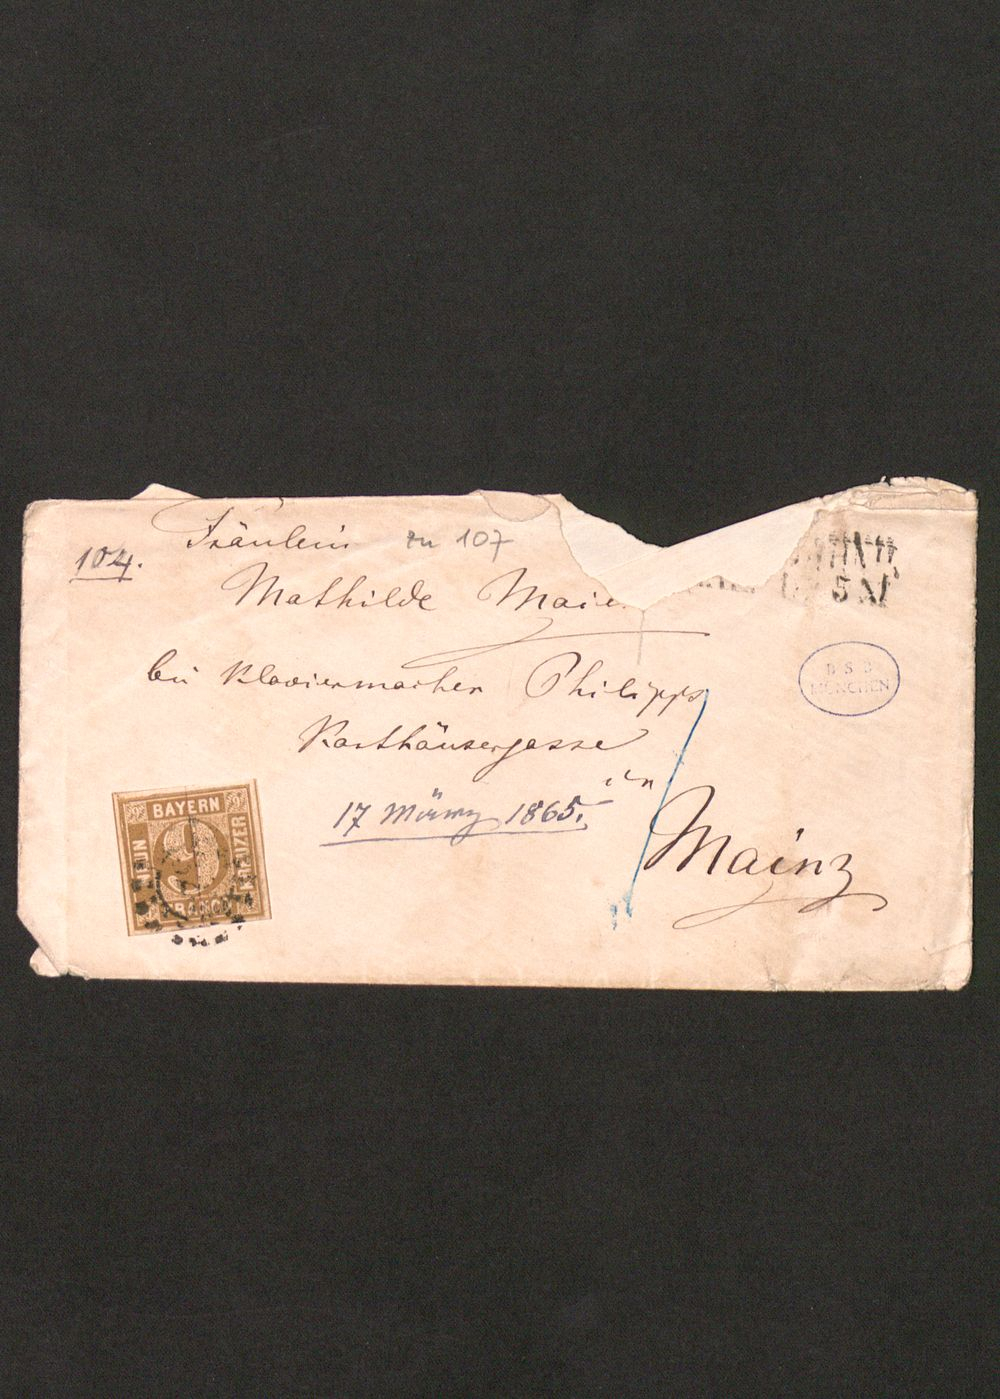 Fräulein zu 107
104.
Mathilde Maie
bei Klaviermacher Philipps
Karthäusergasse
in
17 März 1865.
Mainz
BAYERN
NEUN
KREUZER
FRANCO
9
B S B
MÜNCHEN